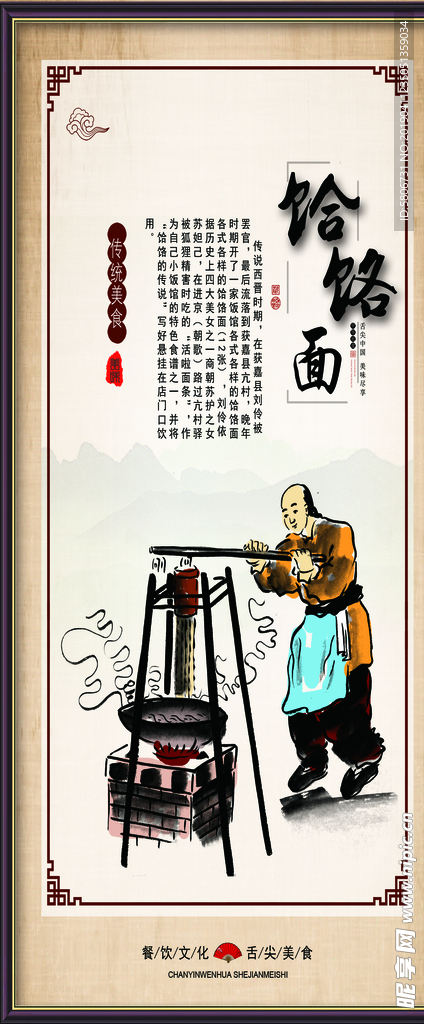 饸
饹
面
舌尖中国 美味尽享
传说西晋时期，在获嘉县刘伶被
罢官，最后流落到获嘉县亢村，晚年
时期开了一家饭馆各式各样的饸饹面
各式各样的饸饹面（12张），刘伶依
据历史上四大美女之一商朝苏护之女
苏妲己，在进京（朝歌）路过亢村驿
被狐狸精害时吃的“活啦面条”，作
为自己小饭馆的特色食谱之一，并将
“饸饹的传说”写好悬挂在店门口饮
用。
传统美食
餐/饮/文/化 舌/尖/美/食
CHANYINWENHUA SHEJIANMEISHI
昵享网 www.nipic.cn